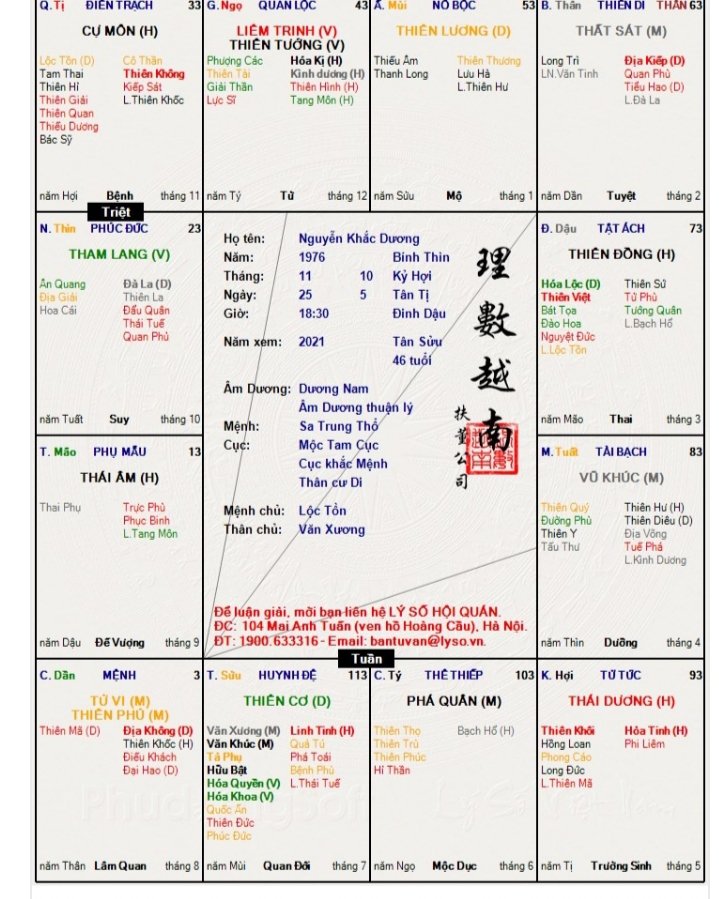 Q. Tị ĐIỀN TRẠCH 33
CỰ MÔN (H)
Lộc Tồn (D) Cô Thần
Tam Thai Thiên Không
Thiên Hỉ Kiếp Sát
Thiên Giải L.Thiên Khốc
Thiên Quan
Thiếu Dương
Bác Sỹ
năm Hợi Bệnh tháng 11
G. Ngọ QUAN LỘC 43
LIÊM TRINH (V)
THIÊN TƯỚNG (V)
Phượng Các Hóa Kị (H)
Thiên Tài Kình dương (H)
Giải Thần Thiên Hình (H)
Lực Sĩ Tang Môn (H)
năm Tý Tử tháng 12
Ấ. Mùi NÔ BỘC 53
THIÊN LƯƠNG (D)
Thiếu Âm Thiên Thương
Thanh Long Lưu Hà
L.Thiên Hư
năm Sửu Mộ tháng 1
B. Thân THIÊN DI THÂN 63
THẤT SÁT (M)
Long Trì Địa Kiếp (D)
LN.Văn Tinh Quan Phù
Tiểu Hao (D)
L.Đà La
năm Dần Tuyệt tháng 2
Triệt
N. Thìn PHÚC ĐỨC 23
THAM LANG (V)
Ân Quang Đà La (D)
Địa Giải Thiên La
Hoa Cái Đẩu Quân
Thái Tuế
Quan Phủ
năm Tuất Suy tháng 10
Họ tên: Nguyễn Khắc Dương
Năm: 1976 Bính Thìn
Tháng: 11 10 Kỷ Hợi
Ngày: 25 5 Tân Tị
Giờ: 18:30 Đinh Dậu
Năm xem: 2021 Tân Sửu
46 tuổi
Âm Dương: Dương Nam
Âm Dương thuận lý
Mệnh: Sa Trung Thổ
Cục: Mộc Tam Cục
Cục khắc Mệnh
Thân cư Di
Mệnh chủ: Lộc Tồn
Thân chủ: Văn Xương
理數越南
扶董公司
Để luận giải, mời bạn liên hệ LÝ SỐ HỘI QUÁN.
ĐC: 104 Mai Anh Tuấn (ven hồ Hoàng Cầu), Hà Nội.
ĐT: 1900.633316 - Email: bantuvan@lyso.vn.
Đ. Dậu TẬT ÁCH 73
THIÊN ĐỒNG (H)
Hóa Lộc (D) Thiên Sứ
Thiên Việt Tử Phù
Bát Tọa Tướng Quân
Đào Hoa L.Bạch Hổ
Nguyệt Đức
L.Lộc Tồn
năm Mão Thai tháng 3
T. Mão PHỤ MẪU 13
THÁI ÂM (H)
Thai Phụ Trực Phù
Phục Binh
L.Tang Môn
năm Dậu Đế Vượng tháng 9
M. Tuất TÀI BẠCH 83
VŨ KHÚC (M)
Thiên Quý Thiên Hư (H)
Đường Phù Thiên Diêu (D)
Thiên Y Địa Võng
Tấu Thư Tuế Phá
L.Kình Dương
năm Thìn Dưỡng tháng 4
Tuần
C. Dần MỆNH 3
TỬ VI (M)
THIÊN PHỦ (M)
Thiên Mã (D) Địa Không (D)
Thiên Khốc (H)
Điếu Khách
Đại Hao (D)
năm Thân Lâm Quan tháng 8
T. Sửu HUYNH ĐỆ 113
THIÊN CƠ (D)
Văn Xương (M) Linh Tinh (H)
Văn Khúc (M) Quả Tú
Tả Phụ Phá Toái
Hữu Bật Bệnh Phù
Hóa Quyền (V) L.Thái Tuế
Hóa Khoa (V)
Quốc Ấn
Thiên Đức
Phúc Đức
năm Mùi Quan Đới tháng 7
C. Tý THÊ THIẾP 103
PHÁ QUÂN (M)
Thiên Thọ Bạch Hổ (H)
Thiên Trù
Thiên Phúc
Hỉ Thần
năm Ngọ Mộc Dục tháng 6
K. Hợi TỬ TỨC 93
THÁI DƯƠNG (H)
Thiên Khôi Hỏa Tinh (H)
Hồng Loan Phi Liêm
Phong Cáo
Long Đức
L.Thiên Mã
năm Tị Trường Sinh tháng 5